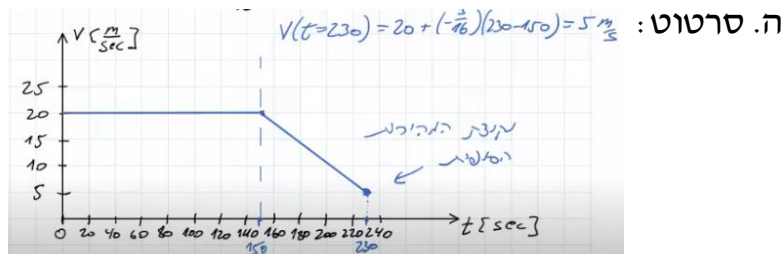 ה. סרטוט:
V(t=230) = 20 + (-3/16)(230-150) = 5 m/s
V [m/sec]
25
20
15
10
5
נקודת המהירות
הסופית
0 20 40 60 80 100 120 140 160 180 200 220 240
150 230
t [sec]